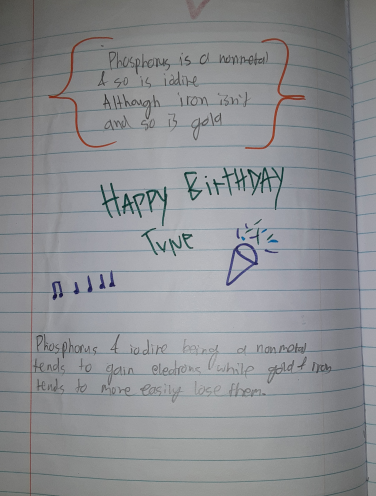 Phosphorus is a nonmetal
& so is iodine
Although iron isn't
and so is gold
HAPPY BirTHDAY
TuNE
Phosphorus & iodine being a nonmetal
tends to gain electrons while gold & iron
tends to more easily lose them.